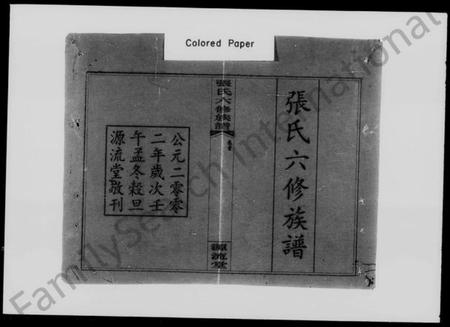 Colored Paper
張氏六修族譜
張氏六修族譜
卷首
源流堂
公元二零零
二年歲次壬
午孟冬穀旦
源流堂敬刊
FamilySearch International